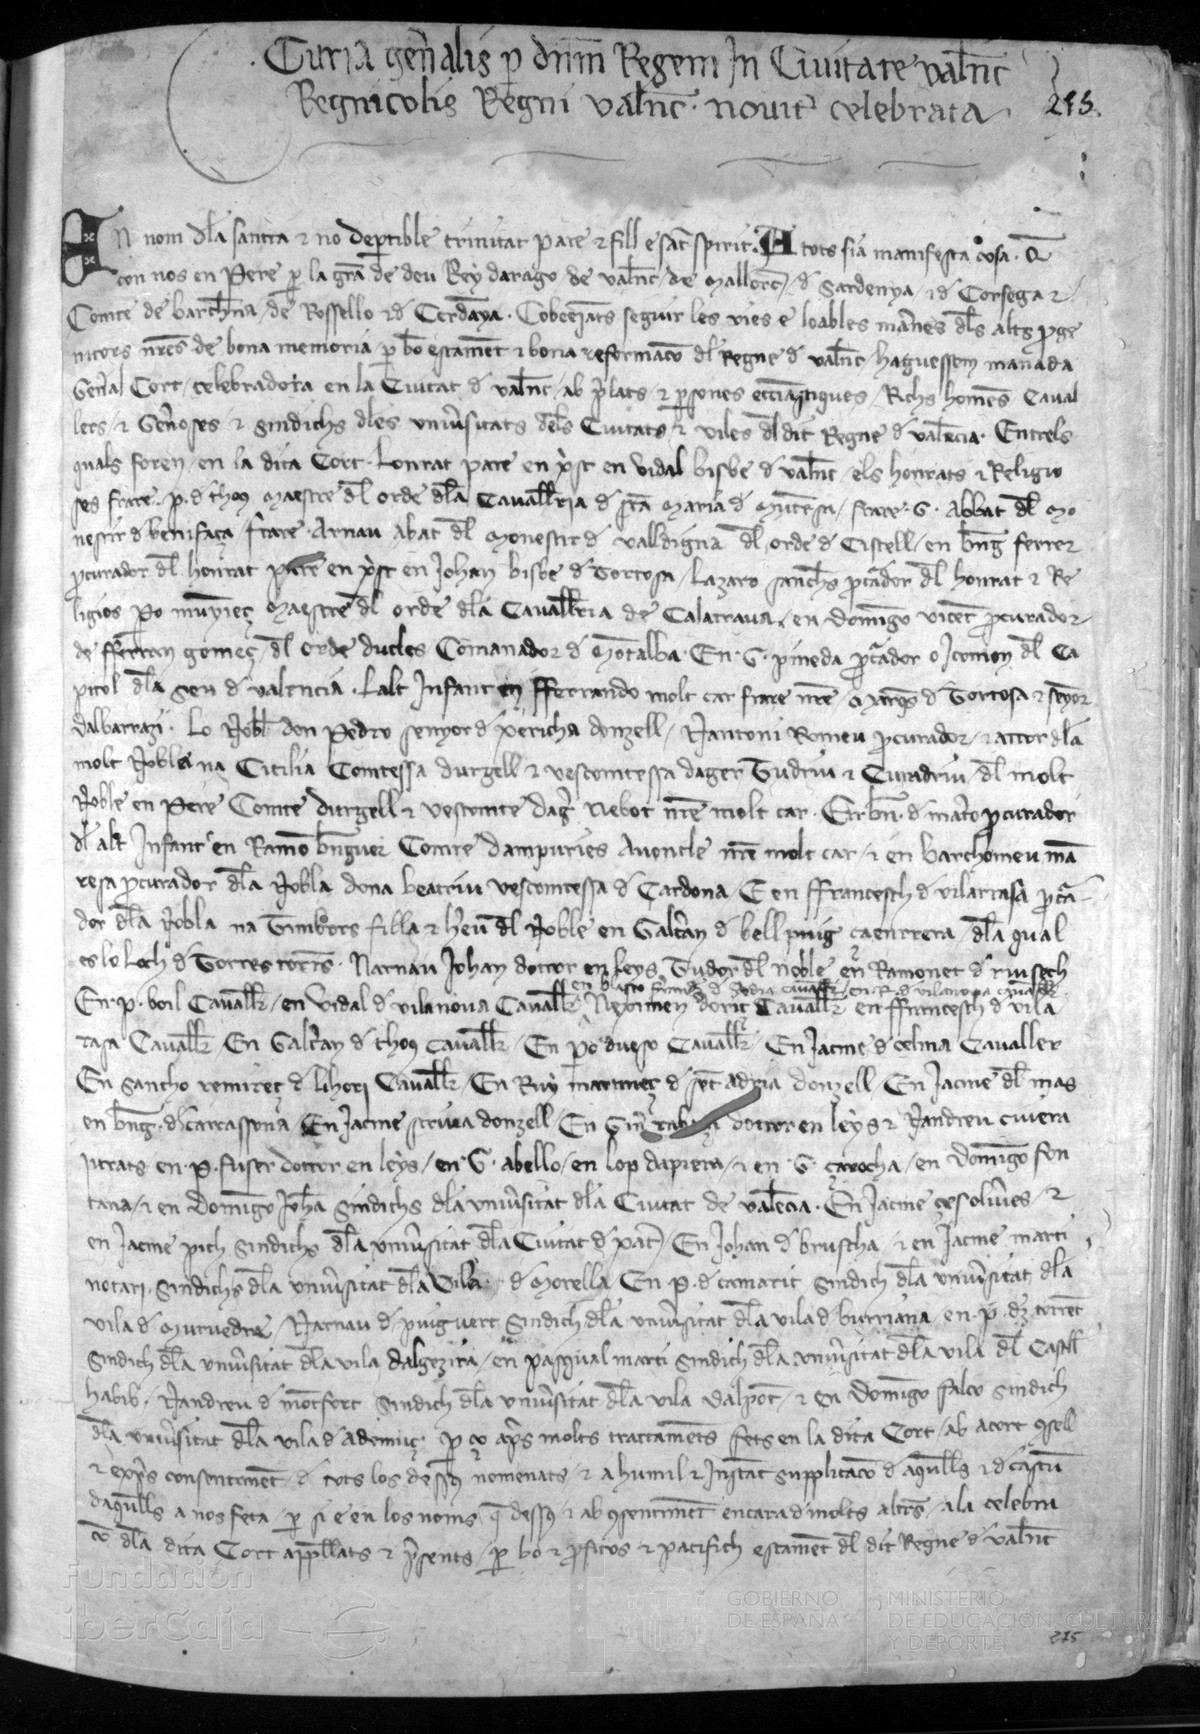 Curia gen̄alis p dn̄m Regem In Civitate valn̄c
Regnicolis Regni valn̄c. novit̄ celebrata
275.
En nom dl̄a sancta τ no deptible trinitat pare τ fill e sāt spirit. A tots sia manifesta cosa. Q̄
con nos en Pere p la grā de deu Rey darago de valn̄c / de Mallorc̄ / d Sardenya / τ d Corsega τ
Comte de barch̄na / de Rossello τ d Cerdāya. Cobeejāts seguir les vies e loables man̄es dl̄s alts pge
nitors nr̄es de bona memoria p bō estamēt τ bona reformacō dl̄ Regne d valn̄c haguessem manada
Gen̄al Cort / celebradora en la Ciutat d valn̄c / ab p̄lats / τ psones eccl̄iastiques / Richs homēs Caval
lers / τ Gen̄oses / τ sindichs dles univ̄sitats dels Ciutats / τ viles dl̄ dit Regne d valēcia. Entrels
quals foren / en la dita Cort. Lonrat pare en xp̄st en Vidal bisbe d valn̄c / els honrats τ Religio
ses frare. p. d thoꝯ Maestre dl̄ orde dl̄a Cavall̄ria d sc̄a Maria d Mūtesa / frare. G. Abbat dl̄ Mo
nestir d benifaça frare. Arnau abat dl̄ Monestir d valldigna dl̄ orde d Cistell / en bn̄g ferrer
pcurador dl̄ honrat pare en xp̄st en Johan bisbe d Tortosa / Lazaro sanch̄s pcador dl̄ honrat τ Re
ligios Po muynieç Maestre dl̄ orde dl̄a Cavall̄ria de Calatrava / en domīgo vicēt pcurador
de fferran gomeç / dl̄ orde ducles Comanador d Mōtalba. En. G. pineda pcador o Iconom dl̄ Ca
pitol dl̄a Seu d valencia. Lalt Infant en fferrando molt car frare nr̄e Marq̄s d Tortosa τ senyor
dalbarrazi. Lo Nobl̄ don Pedro senyor d xericha donzell / Nantoni Romeu pcurador / τ actor dl̄a
molt Nobla na Cicilia Comtessa durgell τ vescomtessa dager Tudriu τ Curadriu dl̄ molt
Noble en Pere Comte durgell τ vescomte daḡ Nebot nr̄e molt car. En bn̄. d mato pcurador
dl̄ alt Infant en Ramō bn̄guer Comte dampuries Avoncle nr̄e molt car / τ en barthomeu mā
resa pcurador dl̄a Nobla dona beatriu vescomtessa d Cardona / E en ffrancesch d vilarrasa pca
dor dl̄a Nobla na Timbors filla τ hereu dl̄ Noble en Galc̄an d bellpuig caenrrera / dl̄a qual
es lo Loch d Torres torrs. Narnau Johan doctor en leys Tudor dl̄ noble en Ramonet d riusech
en blasco d Cavall̄r / en R. d vilanova cavall̄r
En. p. boil Cavall̄r / en vidal d vilanova Cavall̄r Neximen dorit Cavall̄r en ffrancesch d vila
rasa Cavall̄r / En Galc̄an d thoꝯ cavall̄r / En po dueso Cavall̄r / En Jacme d celma Cavaller
En sancho remireç d lihori Cavall̄r / En Ruy martineç d sēt Adria donzell / En Jacme dl̄ mas
en bn̄g. d Carcassona / En Jacme scriva donzell / En Guill̄ doctor en leys τ Nandreu civera
jurats en. p. fuser doctor en leys / en. G. abello / en lop dapiera / τ en. G. çarocha / en domīgo fon
tana / τ en domīgo Joh̄a sindichs dl̄a univ̄sitat dl̄a Ciutat de valēcia. En Jacme çesolives / τ
en Jacme pich sindichs dl̄a univ̄sitat dl̄a Ciutat d xat / En Johan d bruscha / τ en Jacme marti
notari. sindichs dl̄a univ̄sitat dl̄a Vila d Morella En. p. d camarit sindich dl̄a univ̄sitat dl̄a
vila d Murvedre / Narnau d puig vert sindich dl̄a univ̄sitat dl̄a vila d burriana / en. p. torrēt
sindich dl̄a univ̄sitat dl̄a vila dalgezira / en pasqual marti sindich dl̄a univ̄sitat dl̄a vila dl̄ Castell
habib. Nandreu d mōtfort sindich dl̄a univ̄sitat dl̄a vila dalpōt / τ en domīgo falco sindich
dl̄a univ̄sitat dl̄a vila d Ademuç. p ço aps molts tractamēts fets en la dita Cort / ab acort ꝯsell
τ exp̄s consentimēt / d tots los dessꝯ nomenats / τ a humil τ Instāt supplicacō d aquells τ d cascū
daquells a nos feta / p si e en los noms q dessꝯ / τ ab ꝯsentimēt encara d molts altr̄s / a la celebra
cō dl̄a dita Cort appellats τ p̄sents / p bō τ pfitos τ pacifich estamēt dl̄ dit Regne d valn̄c
Fundación
iberCaja
GOBIERNO
DE ESPAÑA
MINISTERIO
DE EDUCACIÓN, CULTURA
Y DEPORTE
275